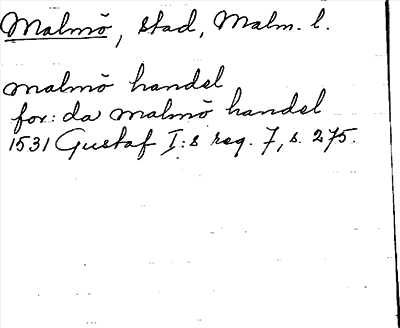 Malmö, stad, Malm. l.
malmö handel
for: da malmö handel
1531 Gustaf I:s reg. 7, s. 275.